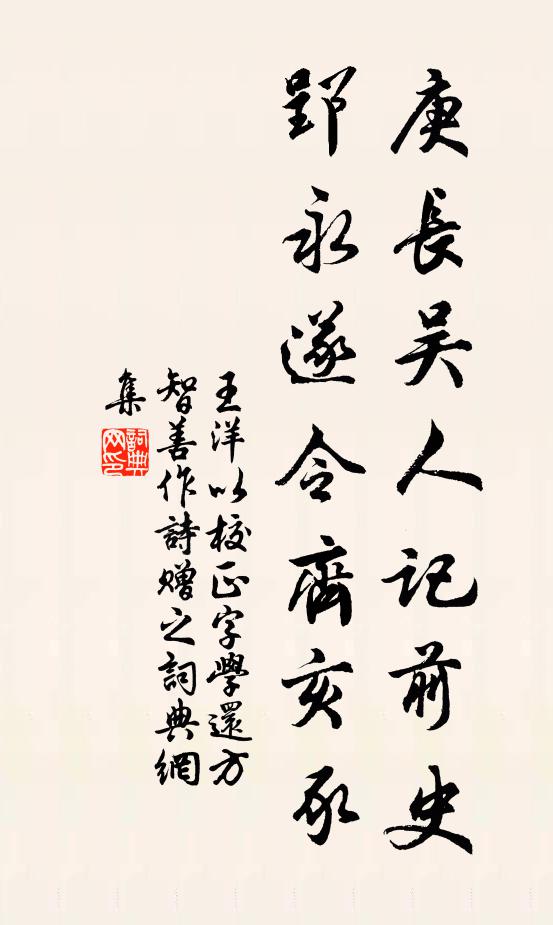 庚長吳人記前史
郢永遂令齊亥豕
王洋以校正字學還方
智善作詩贈之詞典網
集
詞典
网印